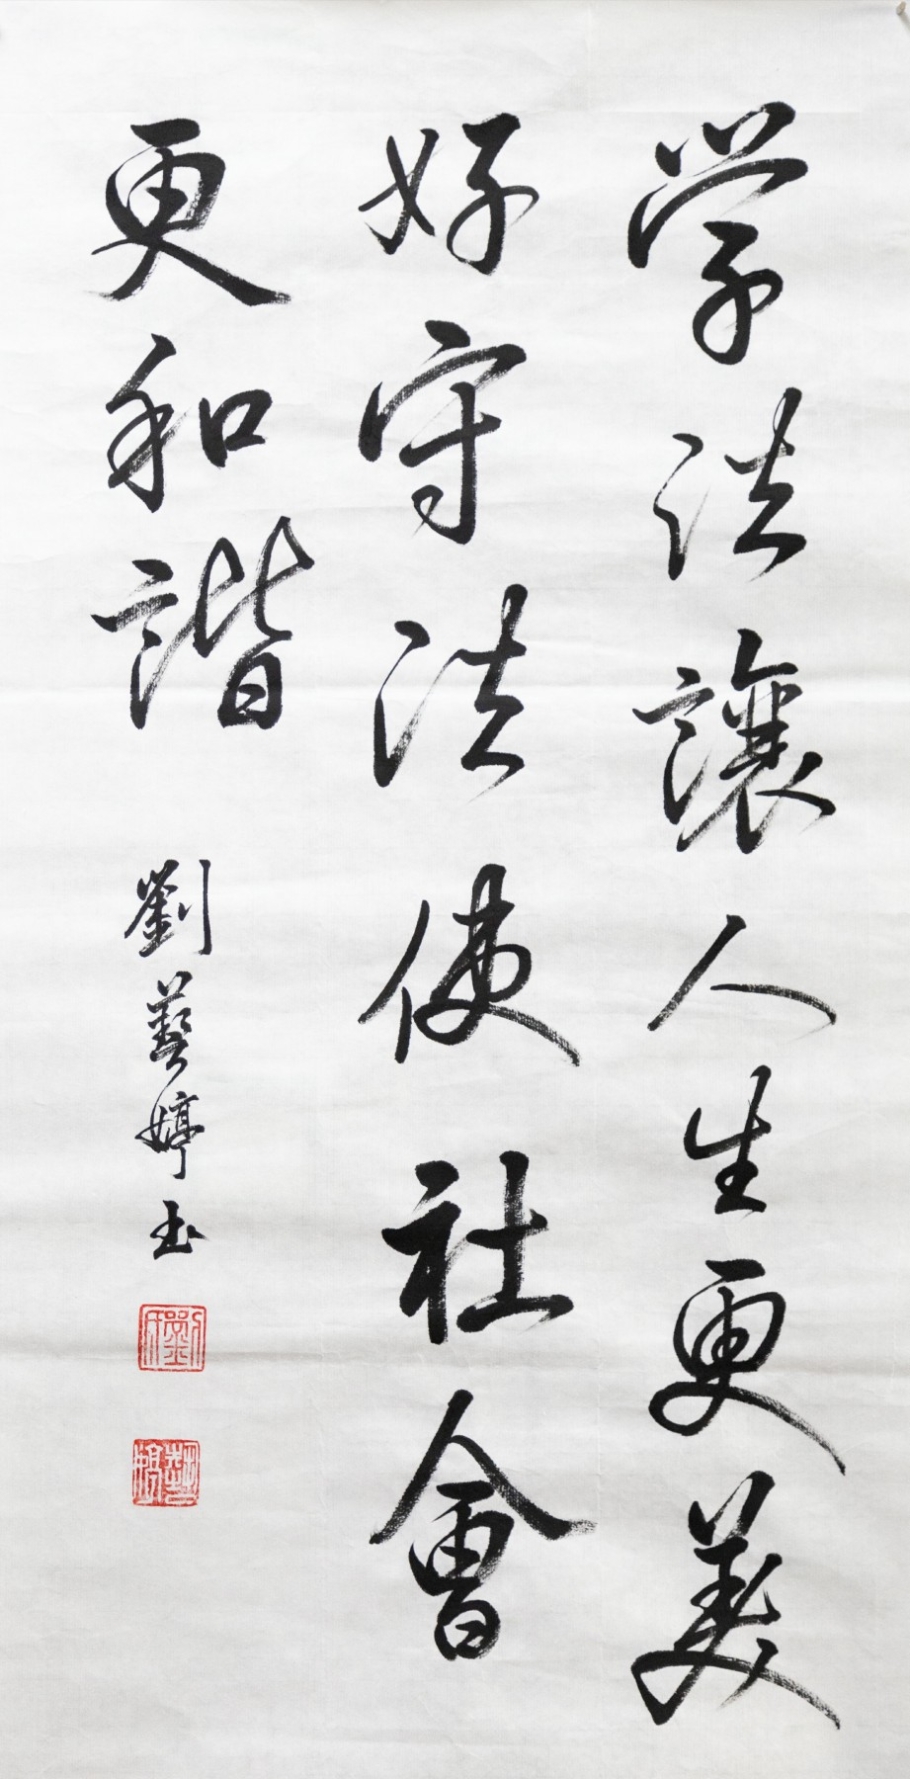 学法讓人生更美
好守法使社會
更和諧
劉藝婷书